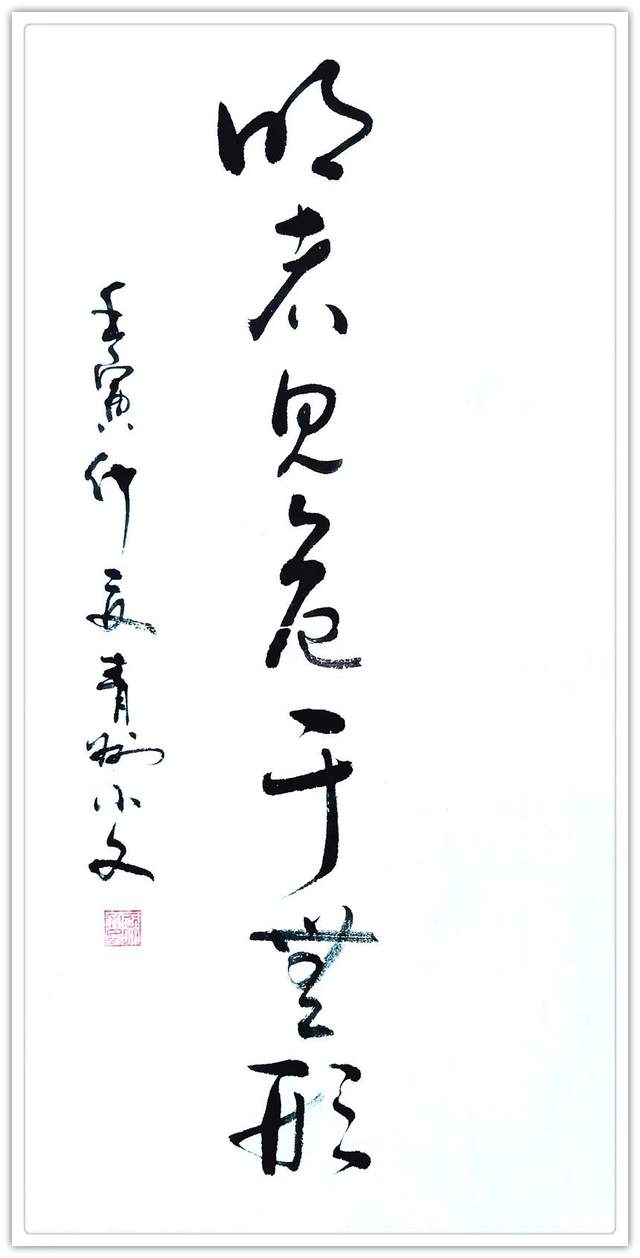 明者见危于無形
壬寅仲夏青州小文